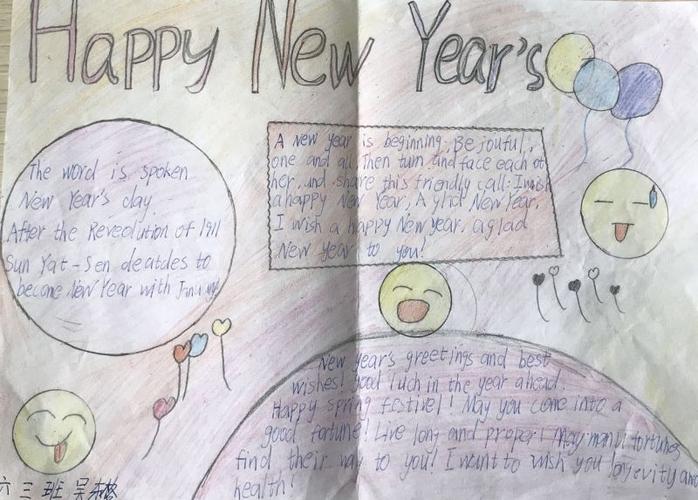 Happy New Year's
The word is spoken
New Year's day
After the Reveolution of 1911
Sun Yat-Sen deatdes to
become New Year with
A new year is beginning, Be joutul,
one and all Then turn and face each ot
her, and share this friendly call: I wish
a happy New Year, A glad New Year,
I wish a happy New year, a glad
New year to you!
New year's greetings and best
wishes! good luch in the year ahead.
Happy spring festivel! May you come into a
good fortune! Live long and proper! May manu fortunes
find their way to you! I want to wish you logevity and
health!
六三班吴